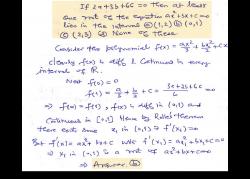 If 2a+3b+6c =0 then at least
one root of the equation ax²+bx+c=0
lies in the interval (a) (1,2) (b) (0,1)
(c) (2,3) (d) None of these
Consider the polynomial f(x) = ax³/3 + bx²/2 + cx
clearly f(x) is diff & Continuous in every
interval of R.
Next f(0) = 0
f(1) = a/3 + b/2 + c = 2a+3b+6c/6 = 0
⇒ f(0) = f(1), f(x) is diff in (0,1) and
Continuous in [0,1] Hence by Rolle's theorem
there exist some x₁ in (0,1) ∋ f'(x₁) = 0
But f'(x) = ax²+bx+c with f'(x₁) = ax₁²+bx₁+c=0
⇒ x₁ in (0,1) is a root of ax²+bx+c=0
⇒ Answer (b)